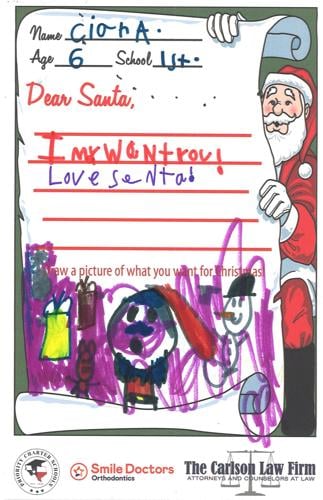 Name Ciara.
Age 6 School 1st.
Dear Santa,
I
Love senta!
Draw a picture of what you want for Christmas!
PRIORITY CHARTER SCHOOLS
Smile Doctors
Orthodontics
The Carlson Law Firm
ATTORNEYS AND COUNSELORS AT LAW